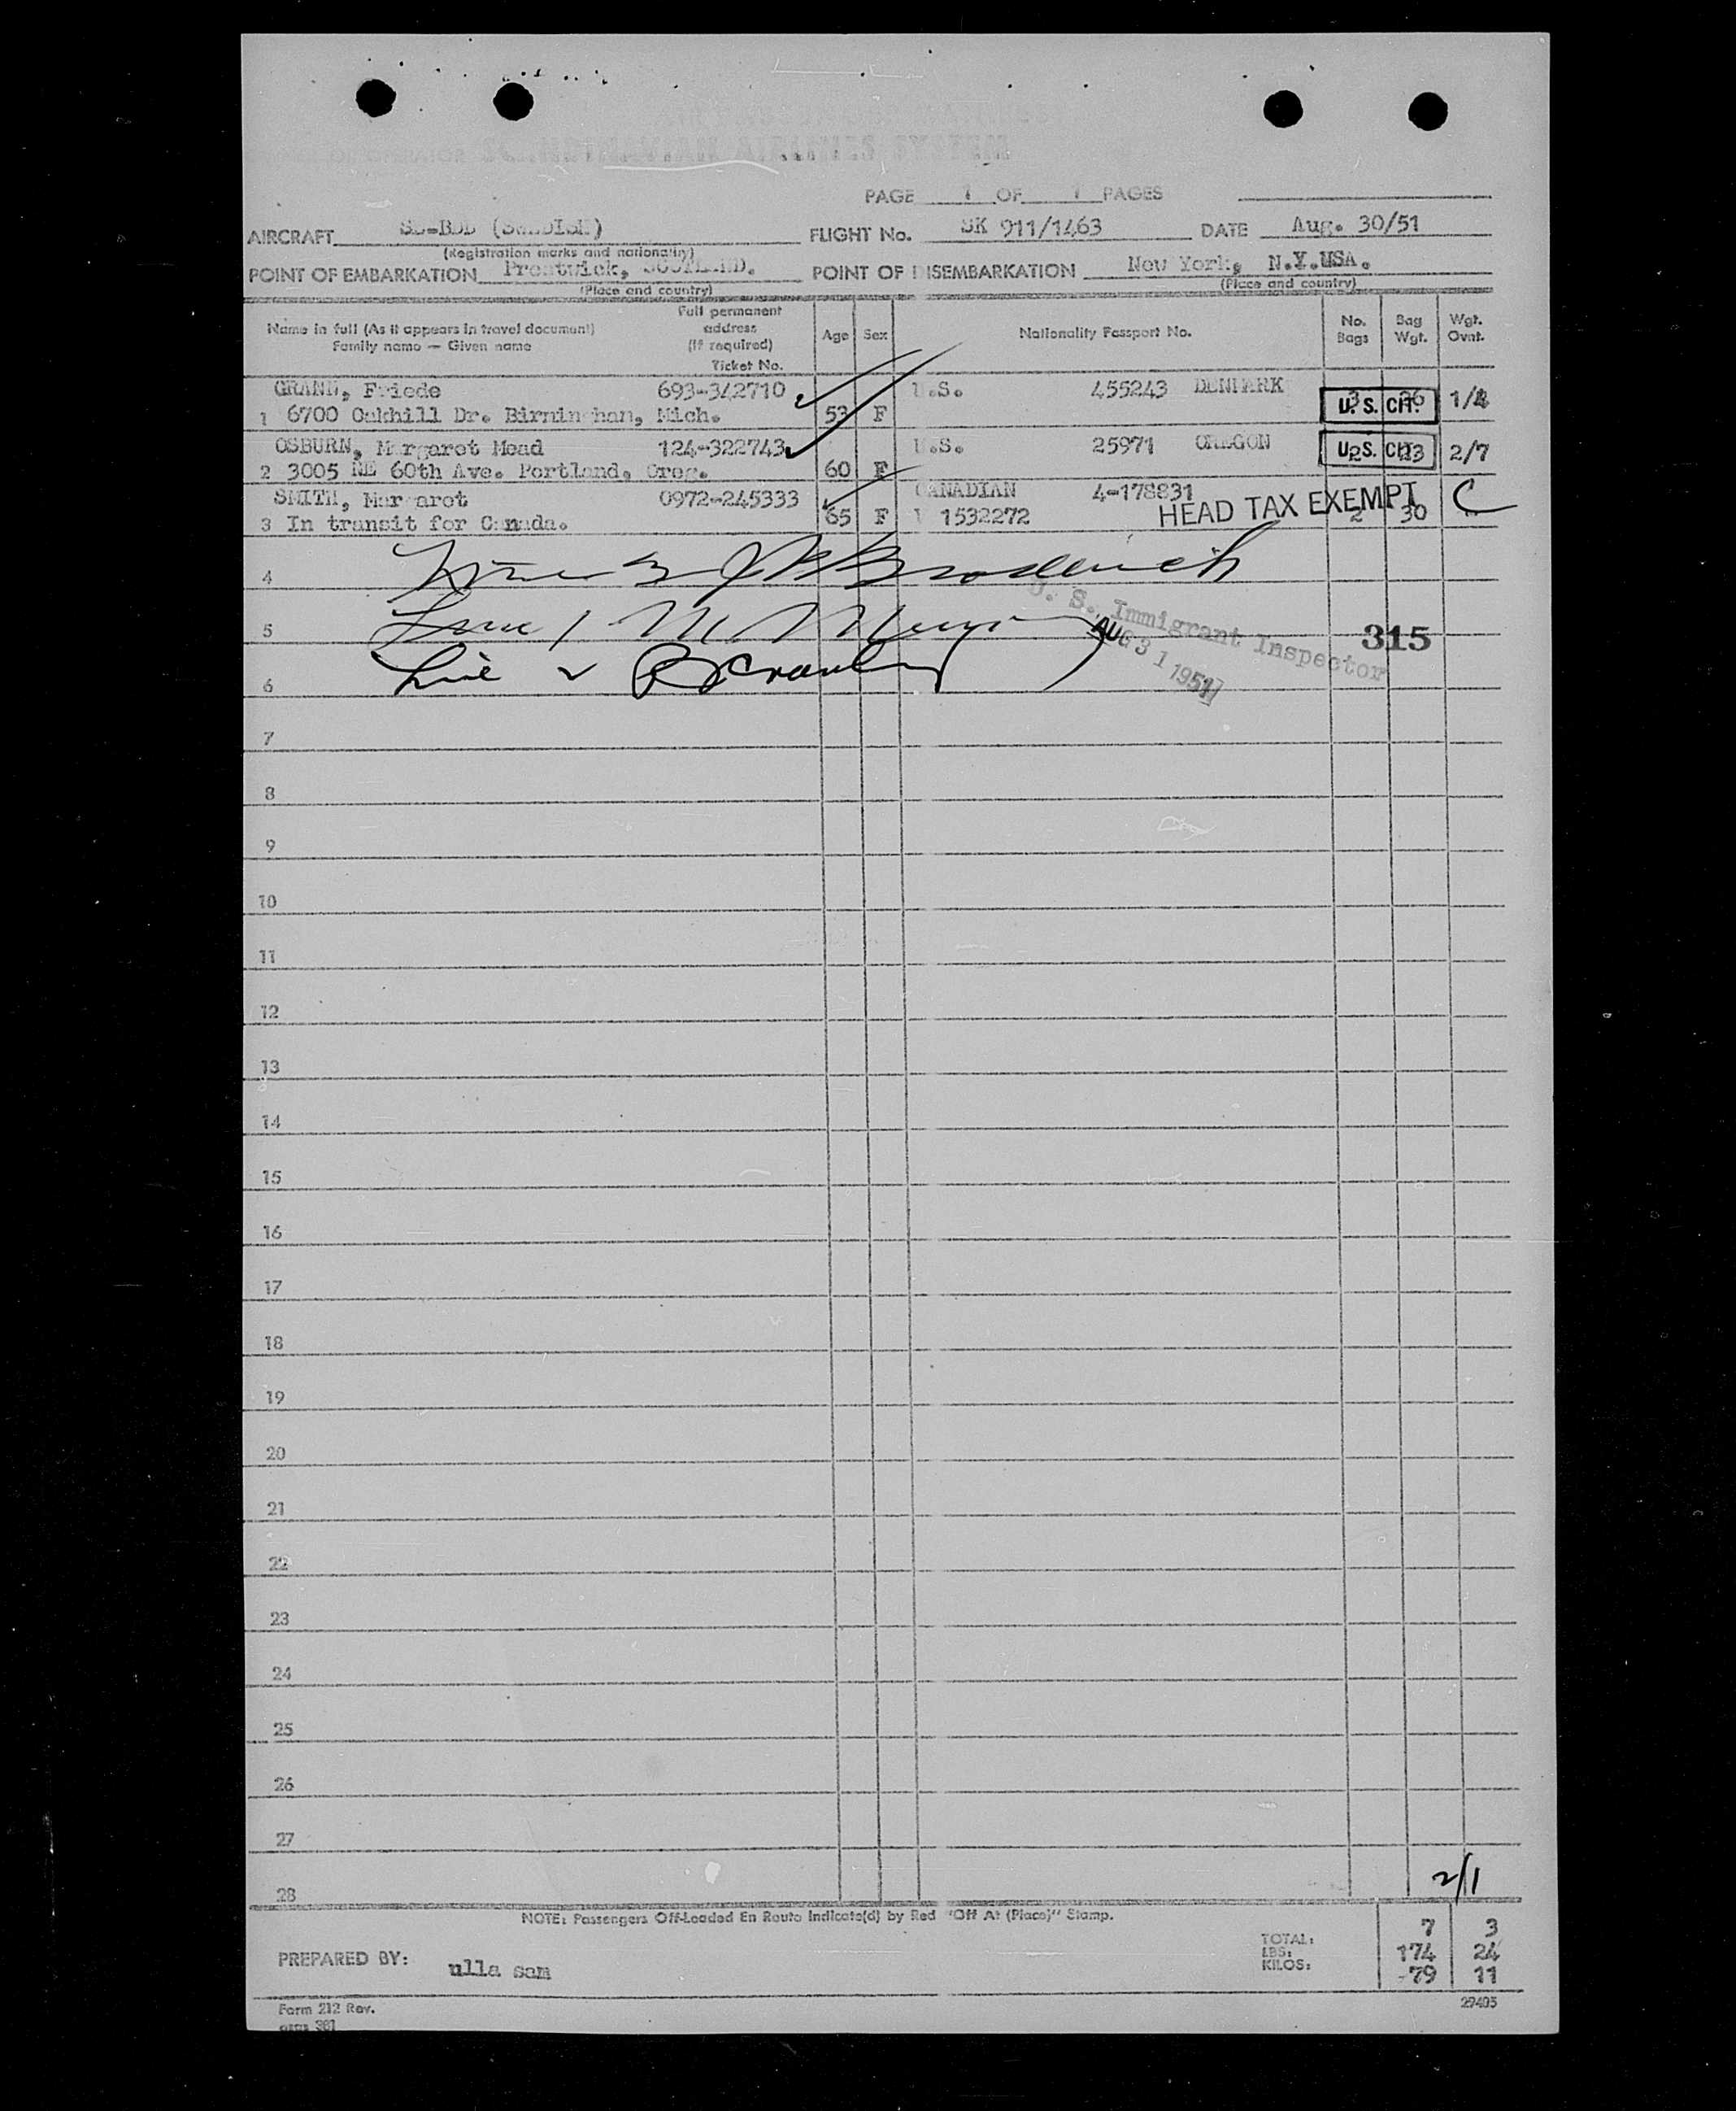 PAGE 1 OF 1 PAGES
AIRCRAFT SE-BDD (SWEDISH) FLIGHT No. SK 911/1463 DATE Aug. 30/51
(Registration marks and nationality)
POINT OF EMBARKATION Prestwick, SCOTLAND. POINT OF DISEMBARKATION New York, N.Y.USA.
(Place and country) (Place and country)
Name in full (As it appears in travel document) Family name — Given name Full permanent address (If required) Ticket No. Age Sex Nationality Passport No. No. Bags Bag Wgt. Wgt. Ovnt.
GRAND, Friede 693-342710 U.S. 455243 DENMARK
1 6700 Oakhill Dr. Birmingham, Mich. 53 F 3 26 U. S. CIT. 1/4
OSBURN, Margaret Mead 124-322743 U.S. 25971 OREGON
2 3005 NE 60th Ave. Portland, Oreg. 60 F 2 23 U. S. CIT. 2/7
SMITH, Margaret 0972-245333 CANADIAN 4-178831
3 In transit for Canada. 65 F 1532272 HEAD TAX EXEMPT 2 30 C
4
5 315
U. S. Immigrant Inspector
AUG 31 1951
6
7
8
9
10
11
12
13
14
15
16
17
18
19
20
21
22
23
24
25
26
27
2/1
28
NOTE: Passengers Off-Loaded En Route Indicate(d) by Red "Off At (Place)" Stamp.
TOTAL: 7 3
LBS: 174 24
KILOS: 79 11
PREPARED BY: ulla sam
Form 212 Rev. 27405
381